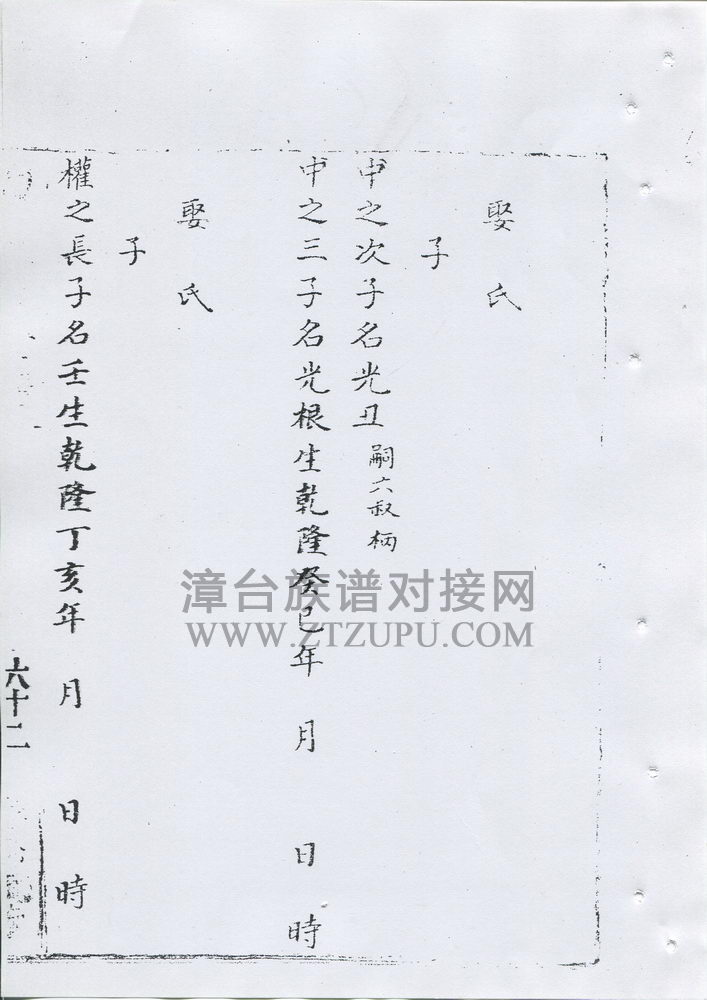 娶　氏
子
中之次子名光丑　嗣六叔柄
中之三子名光根生乾隆癸巳年　月　日　時
娶　氏
子
權之長子名壬生乾隆丁亥年　月　日　時
六十二
漳台族谱对接网
WWW.ZTZUPU.COM